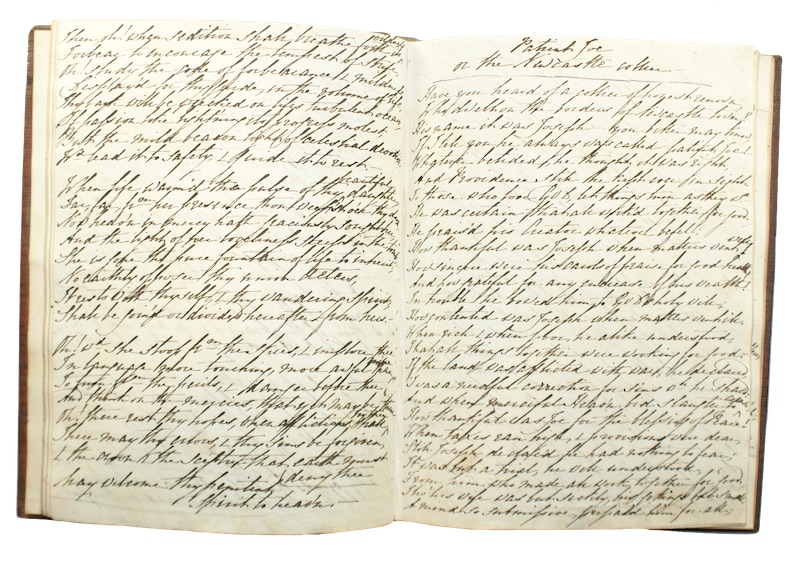 Then oh! when sedition shall breathe forth
Forbear to encourage the tempest by strife
Oh! study the code of forbearance & mildness
Displayed for thy guide, in the volume of life
Thy last will be directed on life's turbulent ocean
Of passion the lightning its progress molest
But the mild beacon light of celestial devotion
Wd lead it to safety & guide it to rest
When life warm'd the pulse of thy beautiful daughter
Far far from her presence thou
Nor heav'n in mercy hath graciously
And the light of her loveliness sleeps in the
She is gone the pure fountain of life to inherit
No earthly of
It rests with thyself, if thy wandering spirit
Shall be join'd or divided hereafter from hers.
Oh! wd she stoop from the skies, & implore thee
In language more touching, more
To turn from thy faults, & danger before thee
And think on the mercies, that yet may be
On these rest thy hopes, when all
There may thy errors, & thy sins be forgiven,
& the crown & the sceptre that earth must deny thee
May welcome thy penitent
Spirit to heav'n
Patient Joe
or the Newcastle collier
Have you heard of a collier of honest renown,
Who dwelt on the borders of Newcastle town?
His name it was Joseph you better may know
If I tell you he always was called patient Joe!
Whatever betided he thought it was right
And Providence still he kept ever in sight
To those who love God, let things turn as they wd
He was certain that all work'd together for good.
He praised his Creator whatever befel:
How thankful was Joseph when matters went well!
How sincere were his carols of praise for good health,
And how grateful for any increase of his wealth!
In trouble he bowed him to God's holy will;
How contented was Joseph when matters went ill;
When rich & when poor, he alike understood,
That all things together were working for good.
If the land was afflicted with war, he declared
'Twas a needful correction for sins wh he shared
And when merciful Heaven bid slaughter to cease
How thankful was Joe for the blessing of Peace!
When taxes ran high, & provisions were dear,
Still Joseph declared he had nothing to fear;
It was but a trial, he well understood,
From him who made all work together for good.
Tho' his wife was but sickly, his gettings but small
A mind so submissive, prepared him for all;